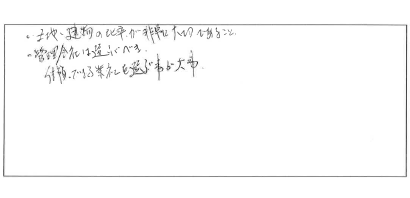 ・土地、建物の比率が非常に大切であること。
・管理会社は選ぶべき。
信頼できる業社を選ぶ事が大事.